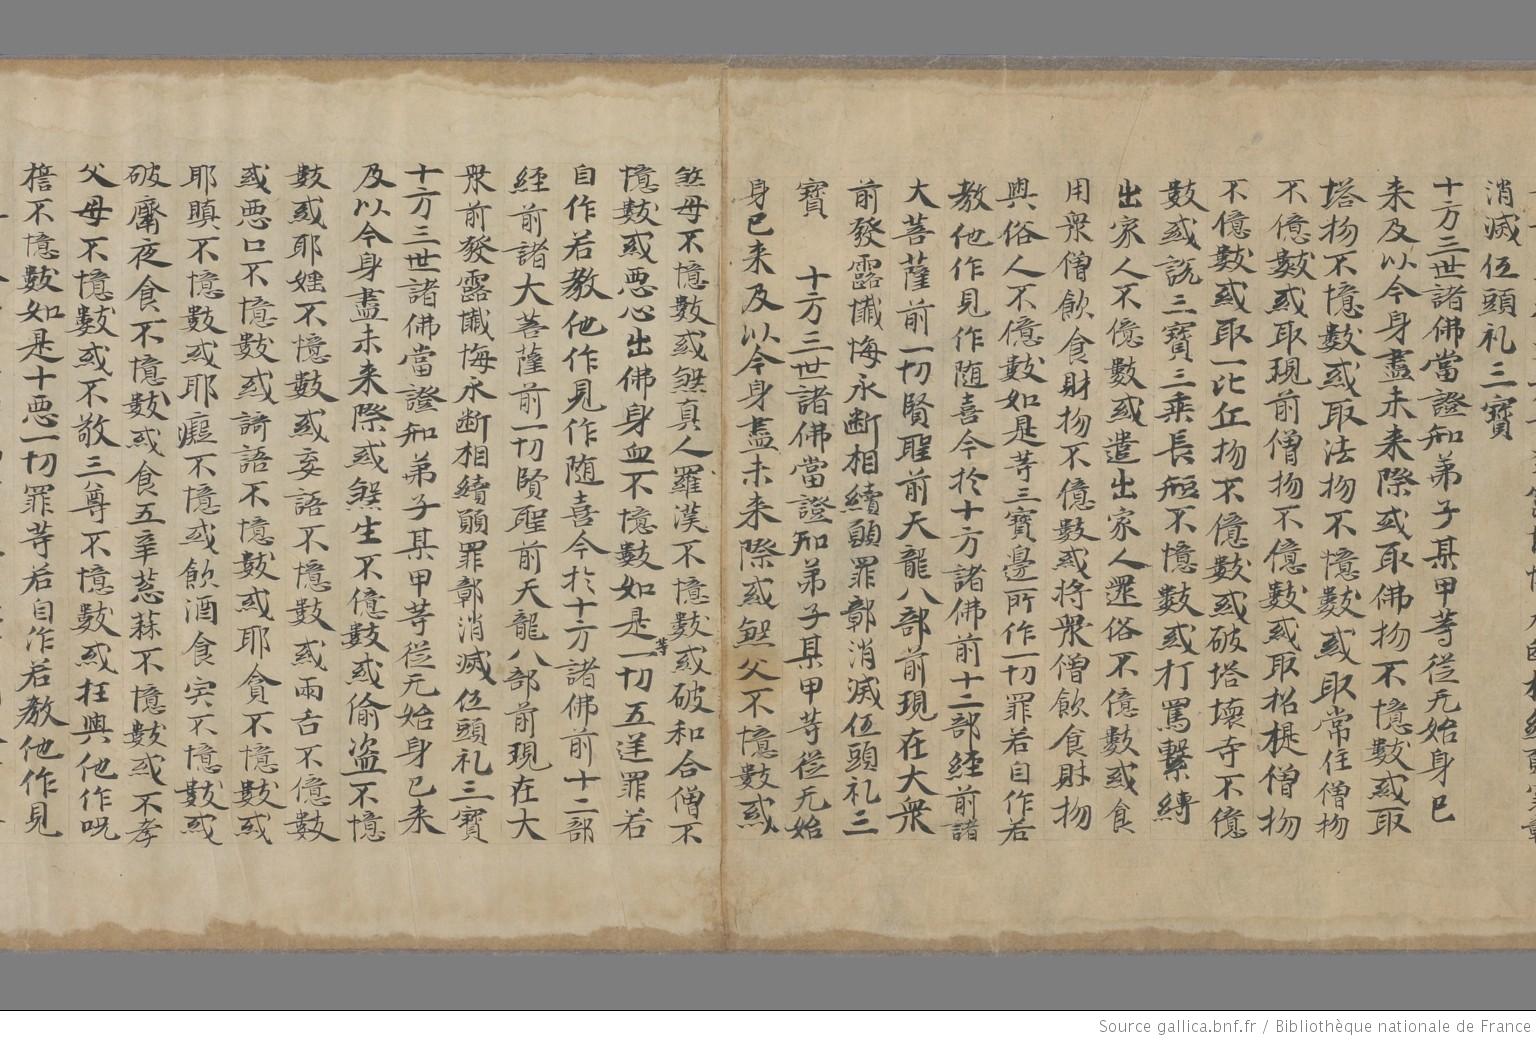 消滅伍頭礼三寳
十方三世諸佛當證知弟子某甲等從无始身已
来及以今身盡未来際或取佛物不憶數或取
塔物不憶數或取法物不憶數或取常住僧物
不億數或取現前僧物不億數或取招提僧物
不億數或取一比丘物不億數或破塔壞寺不億
數或說三寶三乘長短不憶數或打罵繫縛
出家人不億數或遣出家人還俗不億數或食
用衆僧飲食財物不億數或將衆僧飲食財物
與俗人不億數如是等三寶邊所作一切罪若自作若
教他作見作随喜今於十方諸佛前十二部經前諸
大菩薩前一切賢聖前天龍八部前現在大衆
前發露懺悔永断相續願罪鄣消滅伍頭礼三
寶　十方三世諸佛當證知弟子某甲等從无始
身已来及以今身盡未来際或煞父不憶數或
煞母不憶數或煞真人羅漢不憶數或破和合僧不
憶數或悪心出佛身血不憶數如是等一切五逆罪若
自作若教他作見作随喜今於十方諸佛前十二部
經前諸大菩薩前一切賢聖前天龍八部前現在大
衆前發露懺悔永断相續願罪鄣消滅伍頭礼三寶
十方三世諸佛當證知弟子某甲等從无始身已来
及以今身盡未来際或煞生不億數或偷盗不憶
數或耶婬不憶數或妄語不憶數或兩舌不億數
或悪口不憶數或綺語不憶數或耶貪不憶數或
耶瞋不憶數或耶癡不憶或飲酒食宍不憶數或
破齋夜食不憶數或食五辛葱蒜不憶數或不孝
父母不憶數或不敬三尊不憶數或狂與他作呪
不憶數如是十悪一切罪等若自作若教他作見